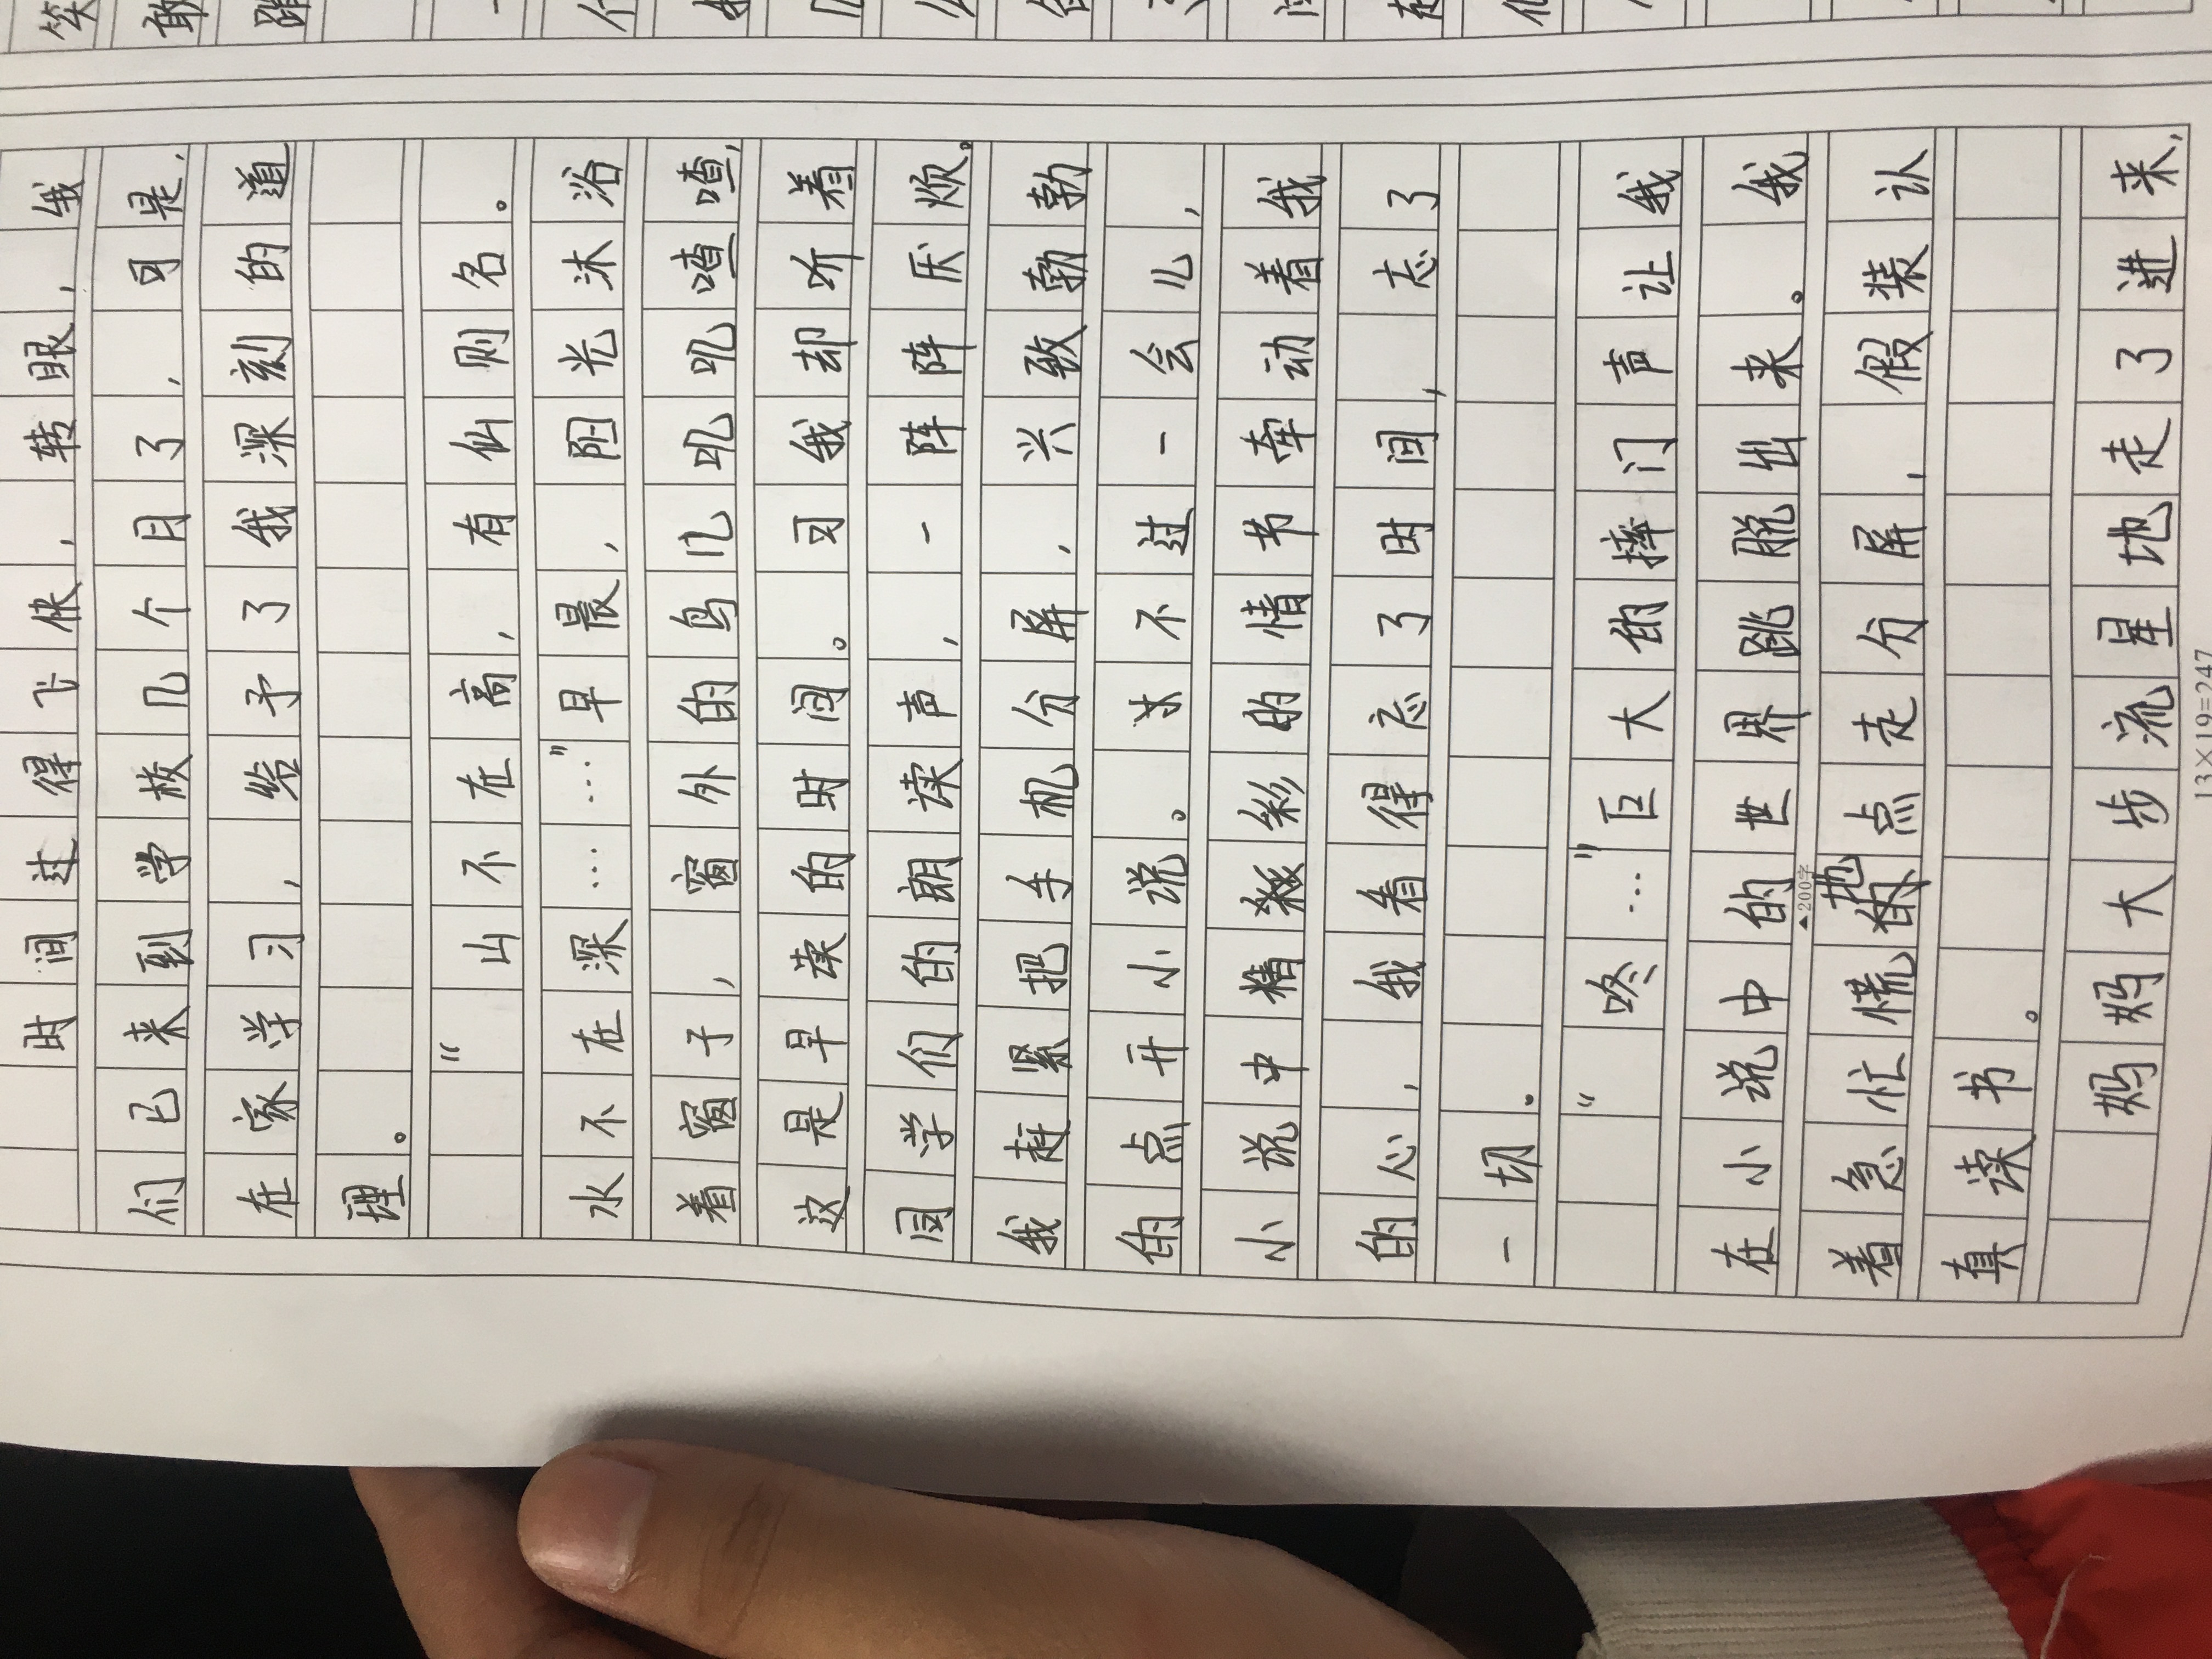 时间过得飞快,转眼,我
们已来到学校几个月了,可是,
在家学习,给予了我深刻的道
理。
“山不在高,有仙则名。
水不在深……”早晨,阳光沐浴
着窗子,窗外的鸟儿叽叽喳喳,
这是早读的时间。可我却听着
同学们的朗读声,一阵阵厌烦。
我赶紧把手机分屏,兴致勃勃
的点开小说。不过一会儿,
小说中精彩的情节牵动着我
的心,我看得忘了时间,忘了
一切。
“咚…”巨大的摔门声让我
在小说中的世界跳脱出来。我
着急忙慌地点走分屏,假装认
真读书。
妈妈大步流星地走了进来,
▲200字
13×19=247